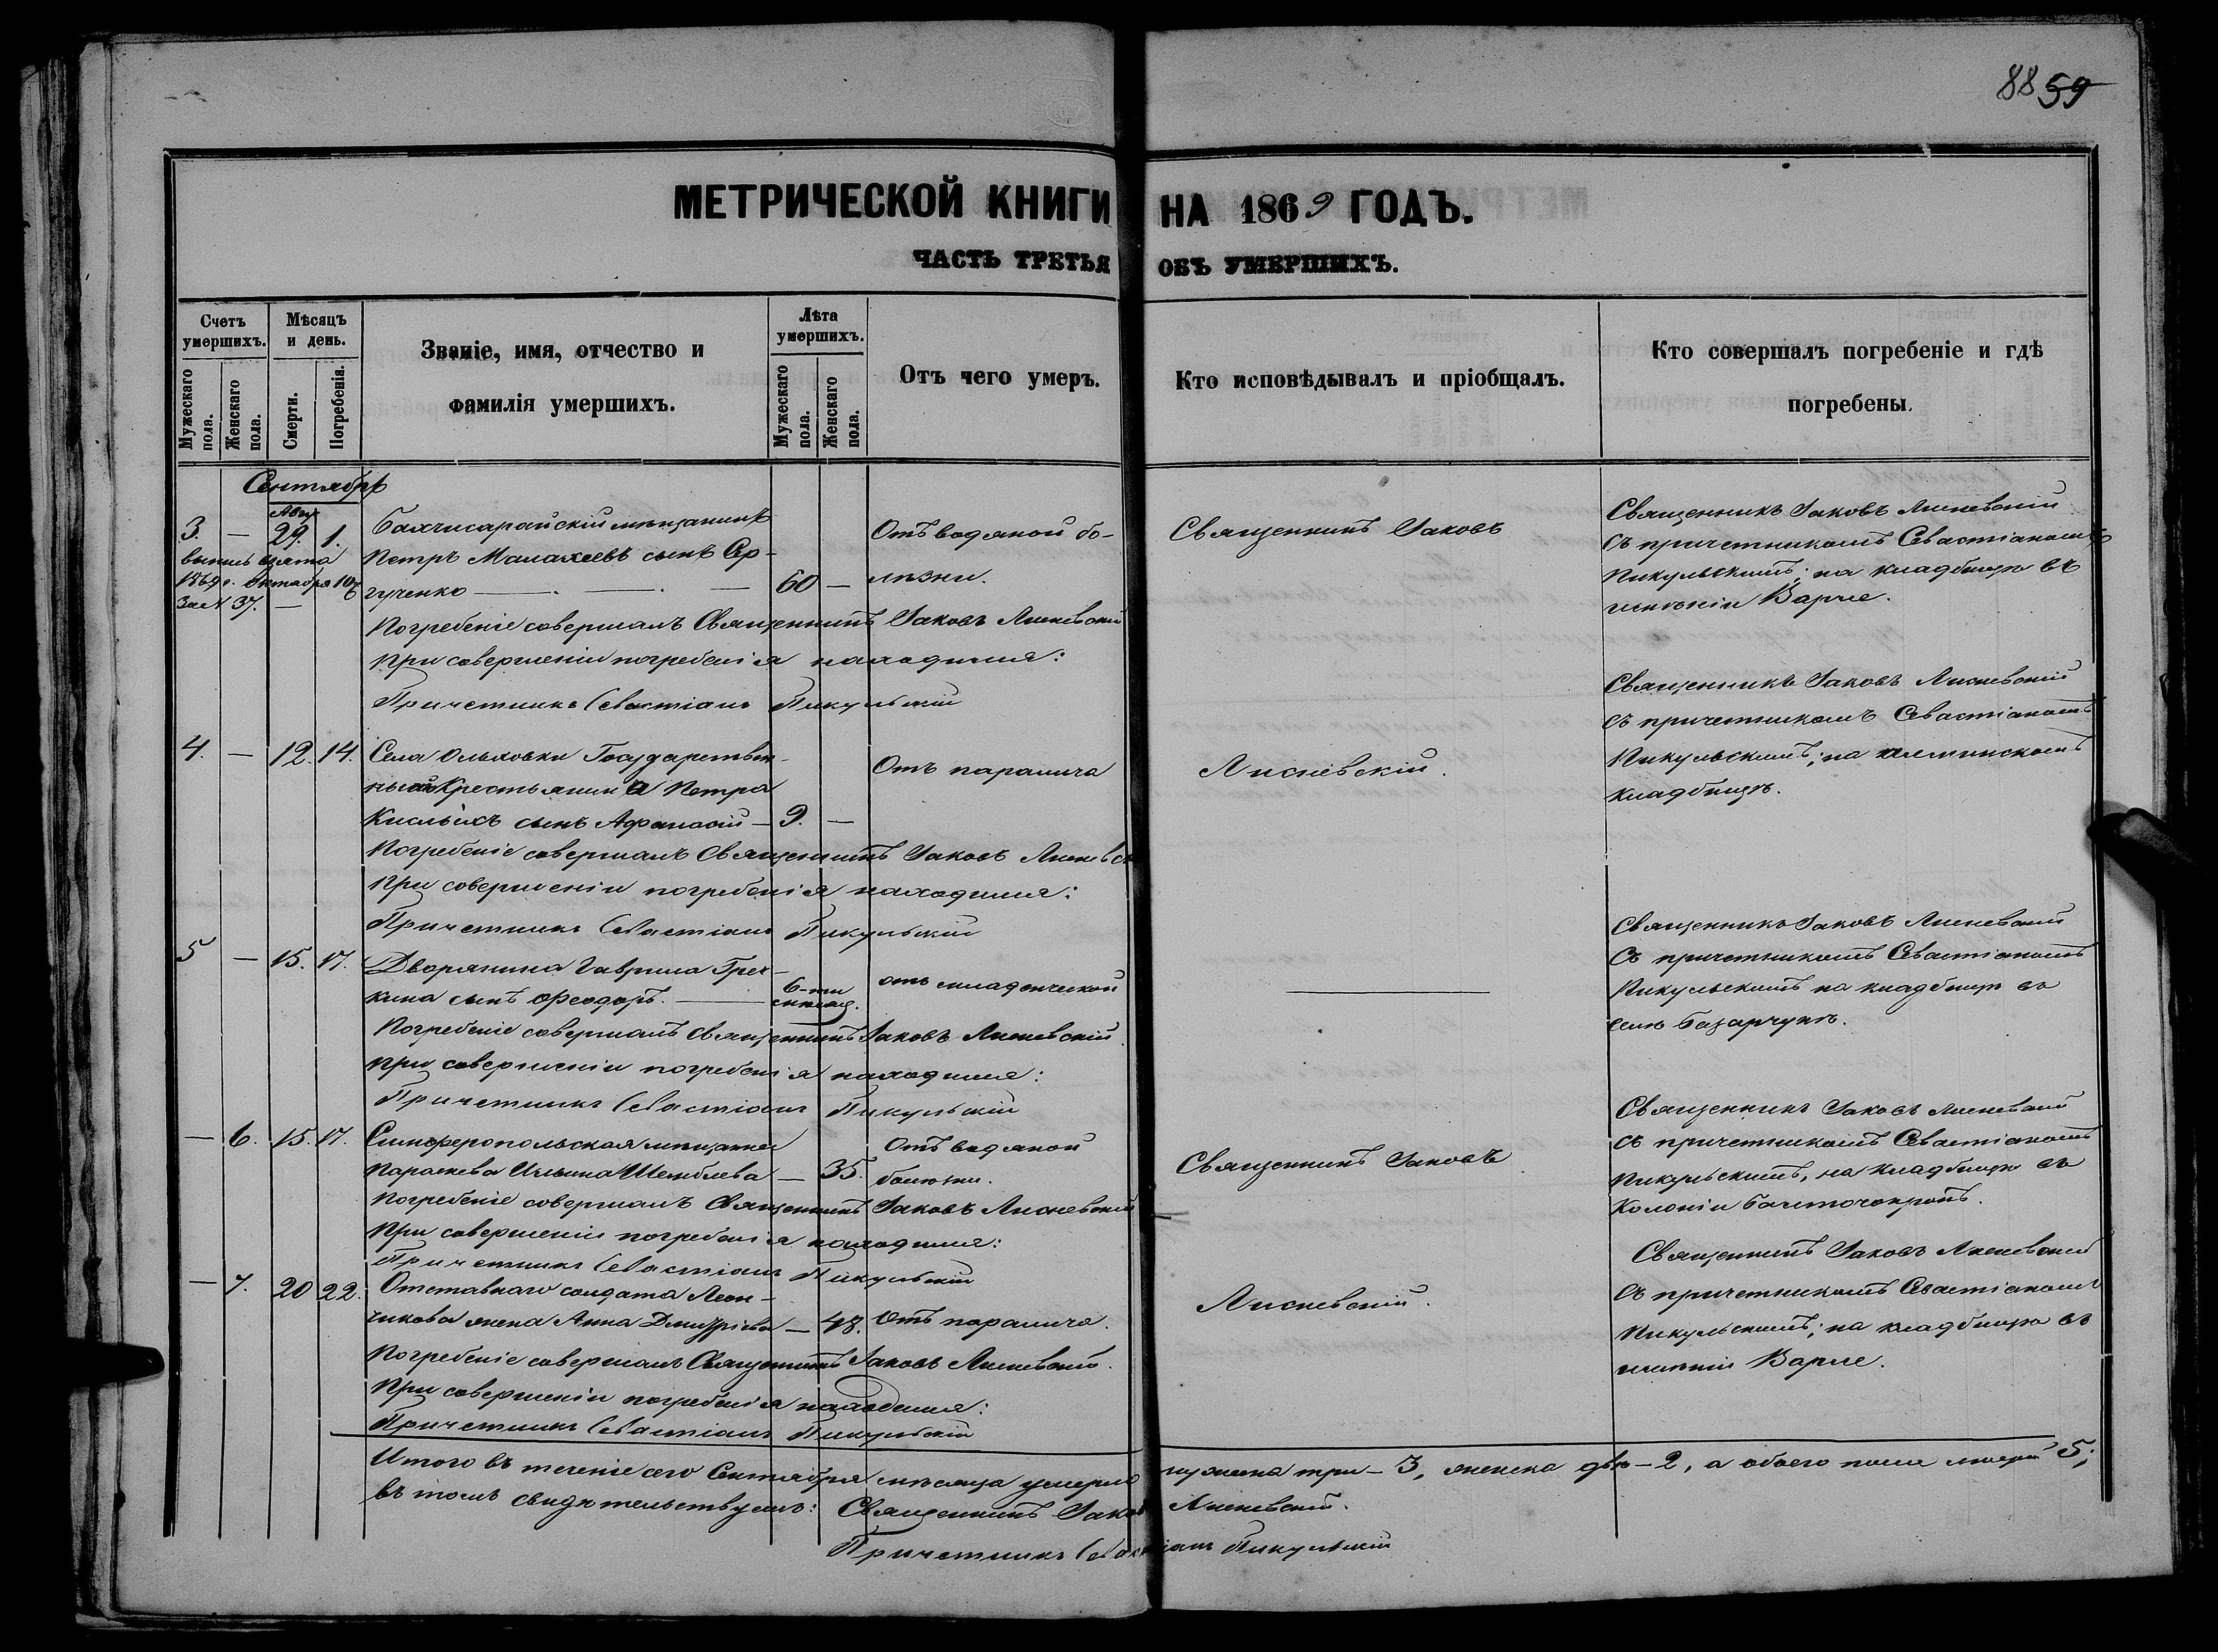 88 59
МЕТРИЧЕСКОЙ КНИГИ НА 1869 ГОДЪ.
ЧАСТЬ ТРЕТЬЯ ОБЪ УМЕРШИХЪ.
Счетъ умершихъ.
Мужескаго пола.
Женскаго пола.
Мѣсяцъ и день.
Смерти.
Погребенія.
Званіе, имя, отчество и
фамилія умершихъ.
Лѣта умершихъ.
Мужескаго пола.
Женскаго пола.
Отъ чего умеръ.
Кто исповѣдывалъ и пріобщалъ.
Кто совершалъ погребеніе и гдѣ
погребены.
Сентябрь
Авгу
3. — 29. 1.
выпись взята
1869 г. Октября 10
за № 37.
Бахчисарайскій мѣщанинъ
Петръ Малахеевъ сынъ Сер-
гученко — 60 —
Отъ водяной бо-
лѣзни.
Священникъ Іаковъ
Священникъ Іаковъ Лисневскій
съ причетникомъ Севастіаномъ
Пикульскимъ; на кладбищѣ въ
имѣніи Варле.
Погребеніе совершалъ Священникъ Іаковъ Лисневскій
При совершеніи погребенія находился:
Причетникъ Севастіанъ Пикульскій
4. — 12. 14.
Села Ольховки Государствен-
наго Крестьянина Петра
Кислыхъ сынъ Афанасій — 9. —
Отъ паралича
Лисневскій.
Священникъ Іаковъ Лисневскій
съ причетникомъ Севастіаномъ
Пикульскимъ; на
кладбищѣ.
Погребеніе совершалъ Священникъ Іаковъ Лисневск
При совершеніи погребенія находился:
Причетникъ Севастіанъ Пикульскій
5 — 15. 17.
Дворянина Гавріила Греч-
кина сынъ Ѳеодоръ. — 6-ти мѣсяц.
отъ младенческой
Священникъ Іаковъ Лисневскій
съ причетникомъ Севастіаномъ
Пикульскимъ на кладбищѣ въ
селѣ Базарчукъ.
Погребеніе совершалъ Священникъ Іаковъ Лисневскій
При совершеніи погребенія находился:
Причетникъ Севастіанъ Пикульскій
— 6. 15. 17.
Симферопольская мѣщанка
Параскева Ильина — 35.
Отъ водяной
болѣзни.
Священникъ Іаковъ
Священникъ Іаковъ Лисневскій
съ причетникомъ Севастіаномъ
Пикульскимъ, на кладбищѣ въ
Колоніи
Погребеніе совершалъ Священникъ Іаковъ Лисневскій
При совершеніи погребенія находился:
Причетникъ Севастіанъ Пикульскій
— 7. 20 22.
Отставнаго солдата Леон-
чикова жена Анна Дмитріева — 48.
Отъ паралича.
Лисневскій.
Священникъ Іаковъ Лисневскій
съ причетникомъ Севастіаномъ
Пикульскимъ; на кладбищѣ въ
имѣніи Варле.
Погребеніе совершалъ Священникъ Іаковъ Лисневскій.
При совершеніи погребенія находился:
Причетникъ Севастіанъ Пикульскій
Итого въ теченіе сего Сентября мѣсяца умерло мужеска три — 3, женска двѣ — 2, а обоего пола 5;
въ томъ свидѣтельствуемъ: Священникъ Іаковъ Лисневскій.
Причетникъ Севастіанъ Пикульскій